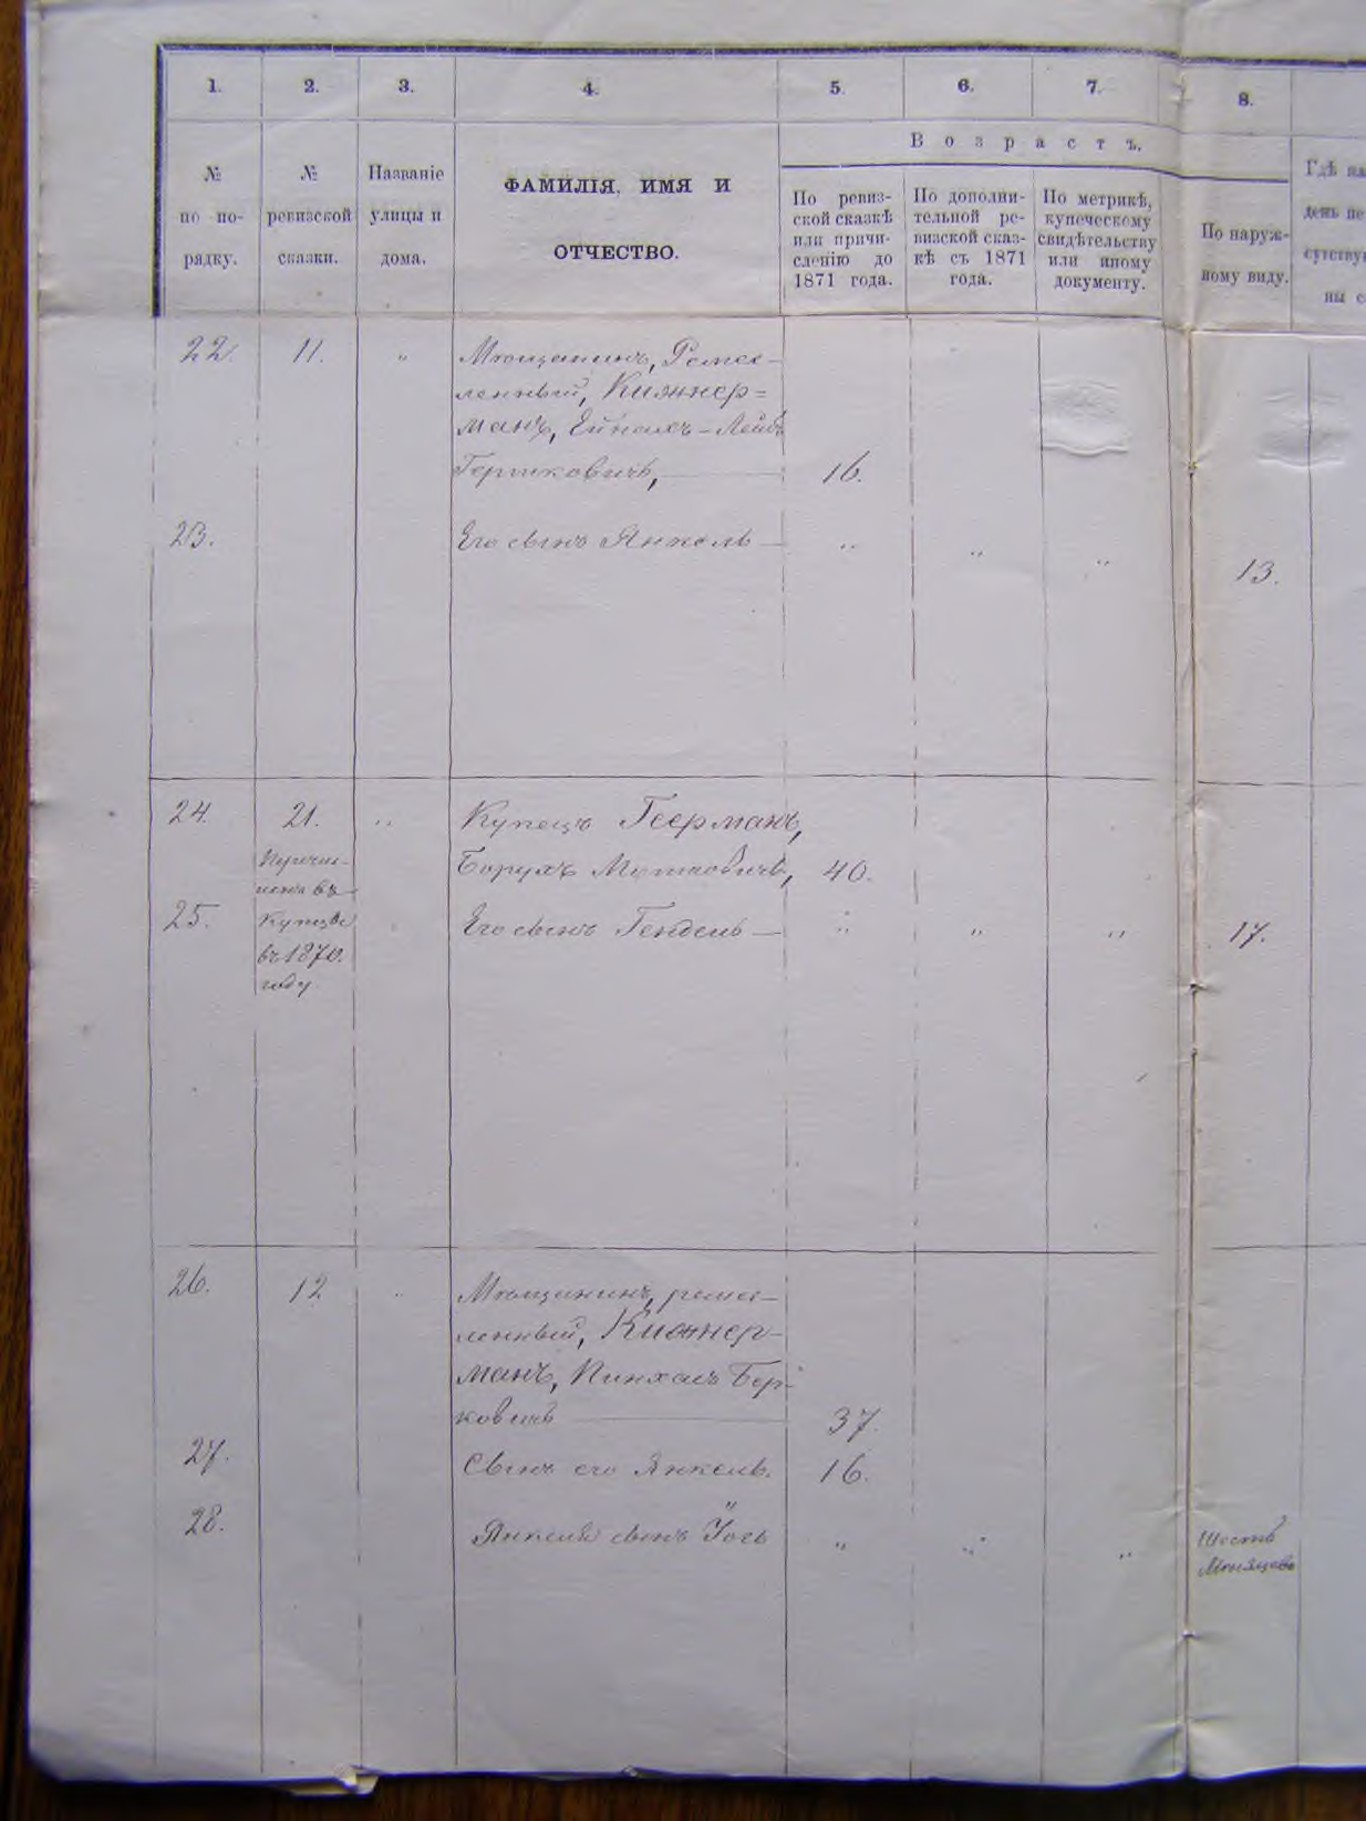 1. 2. 3. 4. 5. 6. 7. 8.
Возрастъ.
№ по по-рядку.
№ ревизской сказки.
Названіе улицы и дома.
ФАМИЛІЯ, ИМЯ И
ОТЧЕСТВО.
По ревиз-
ской сказкѣ
или причи-
сленію до
1871 года.
По дополни-
тельной ре-
визской сказ-
кѣ съ 1871
года.
По метрикѣ,
купеческому
свидѣтельству
или иному
документу.
По наруж-
ному виду.
Гдѣ на
день пе
сутству
ны с
22. 11. " Мѣщанинъ, Ремес-
ленный, Кижнер=
манъ, Ейнахъ-Лейбъ
Гершковичъ, 16.
23. Его сынъ Янкель " " " 13.
24. 21. " Купецъ Геерманъ,
Перечис-
ленъ въ
Купцы
въ 1870.
году
Борухъ Мотковичъ, 40.
25. Его сынъ Гендель " " " 17.
26. 12 " Мѣщанинъ, ремес-
ленный, Кижнер-
манъ, Пинхасъ Бер-
ковичъ 37.
27. Сынъ его Янкель. 16.
28. Янкеля сынъ Іось " " " Шесть
Мѣсяцевъ